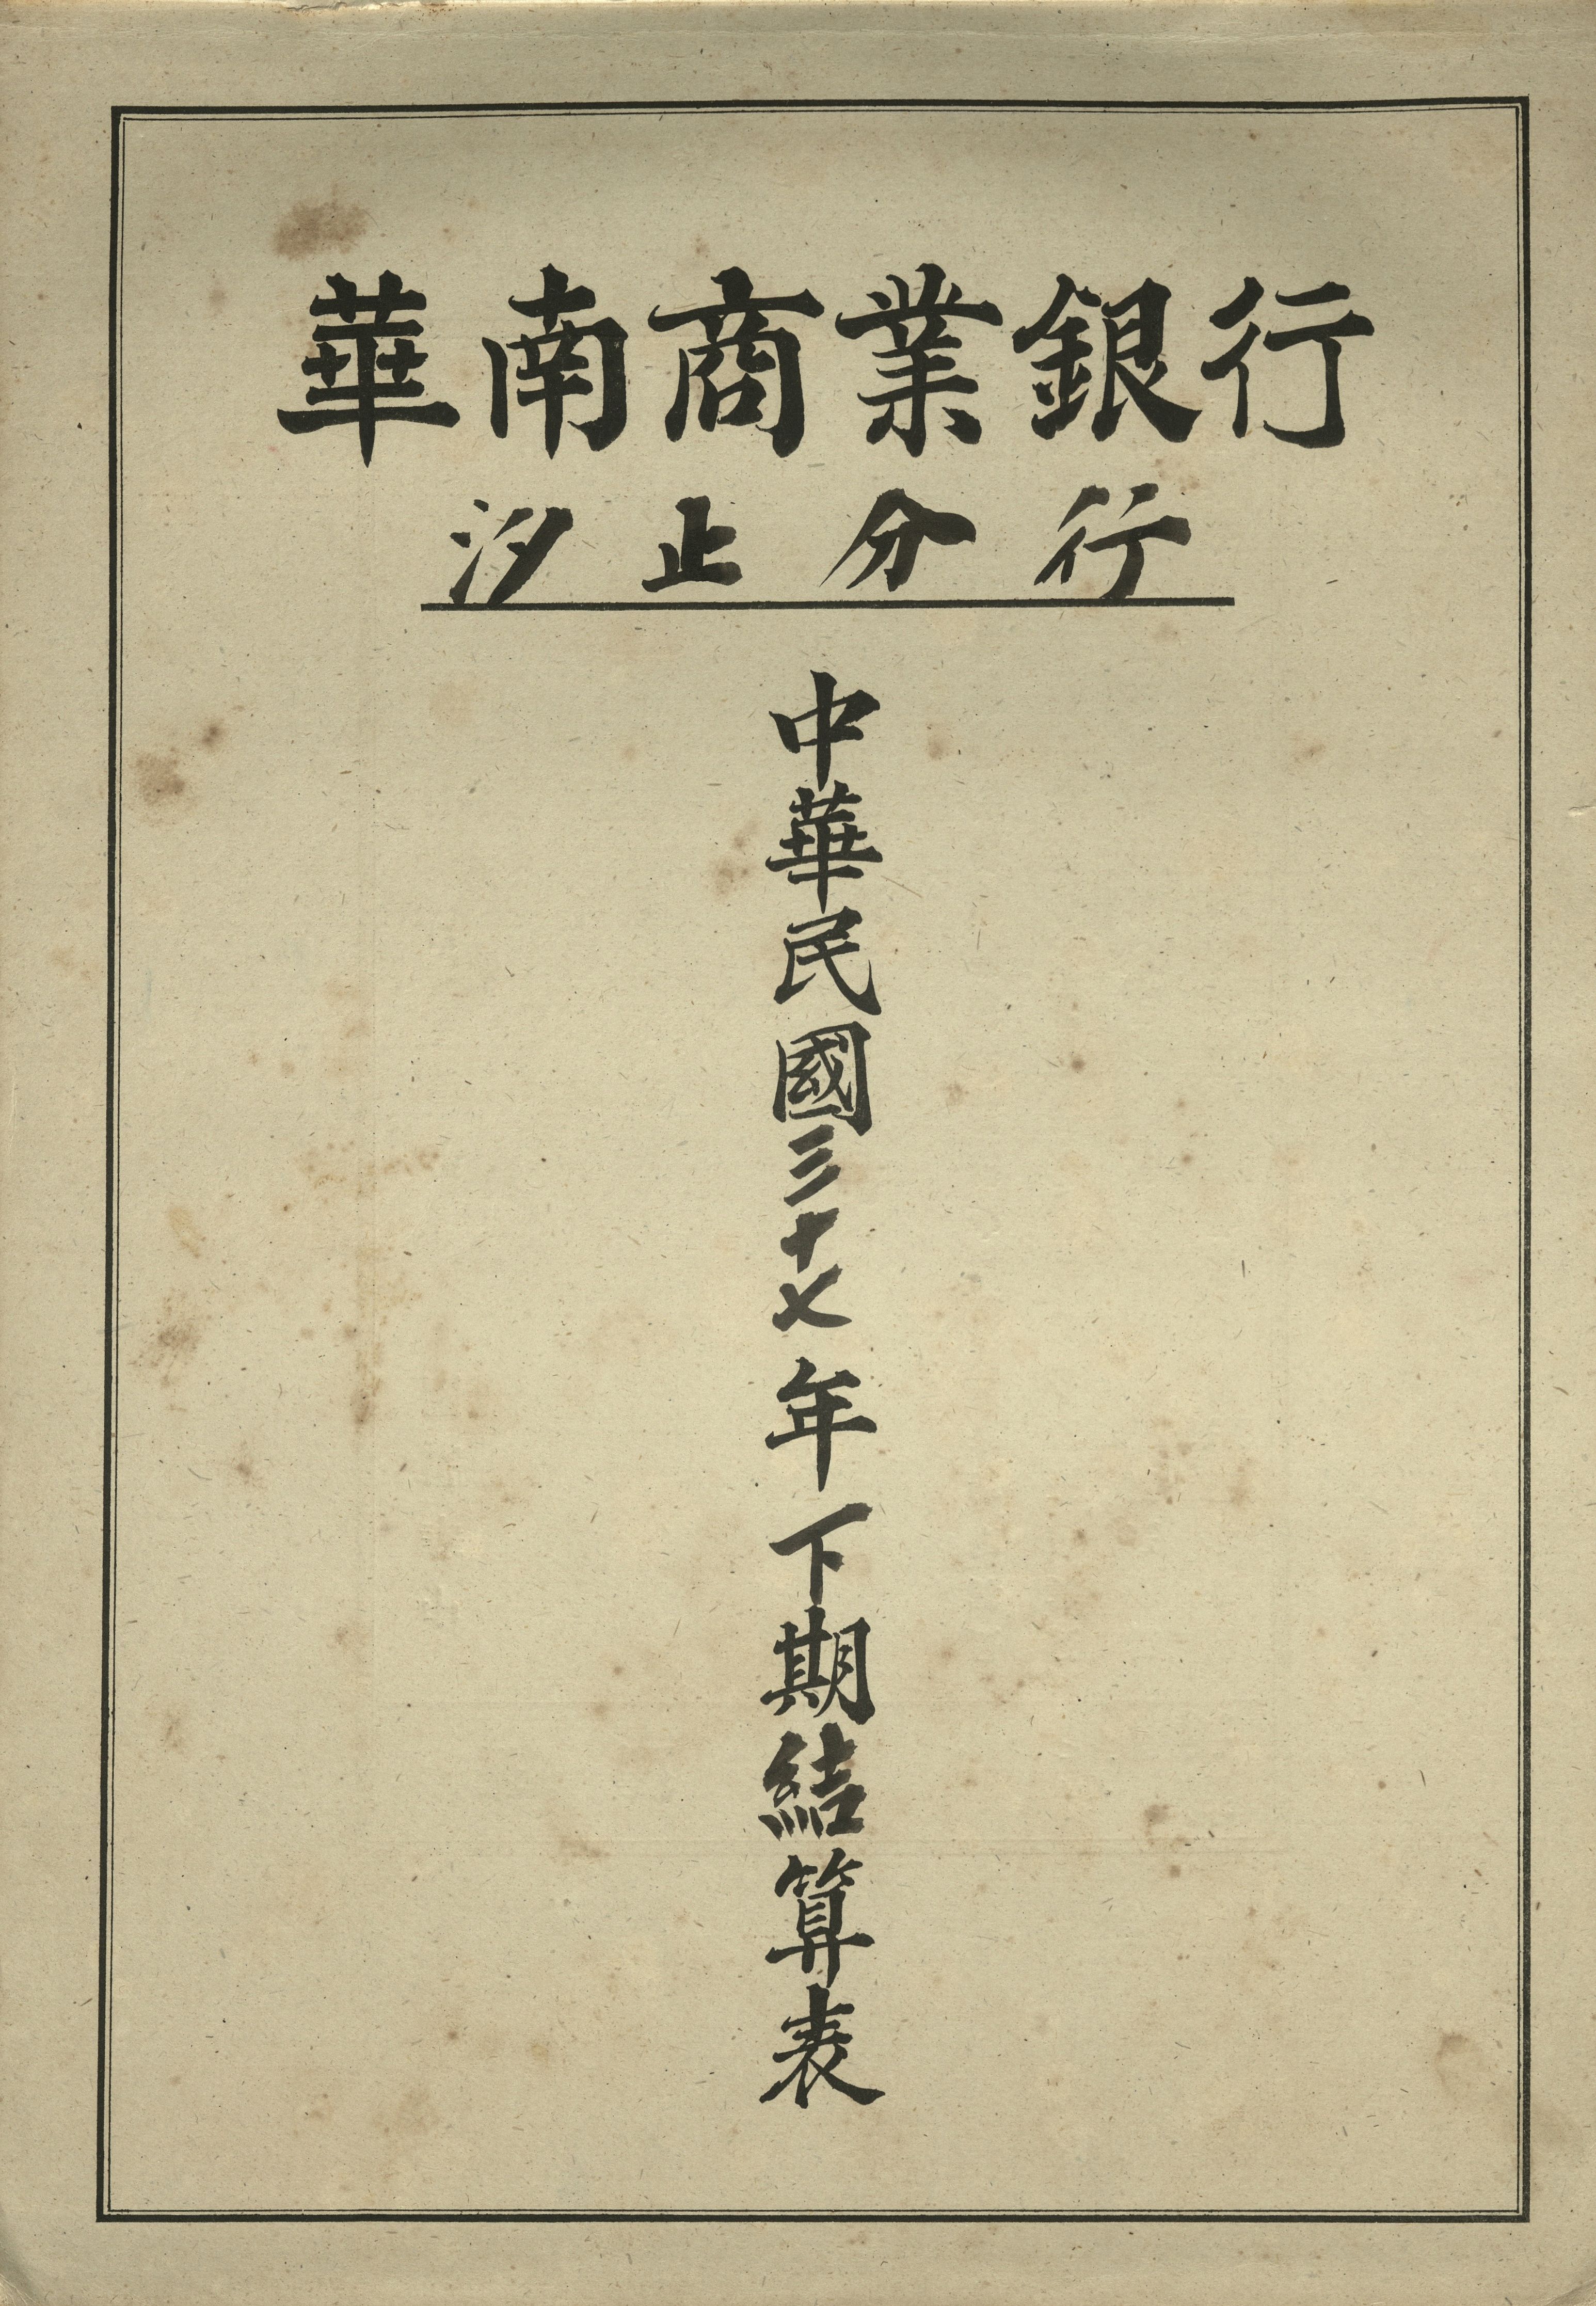 華南商業銀行
汐止分行
中華民國三十七年下期結算表